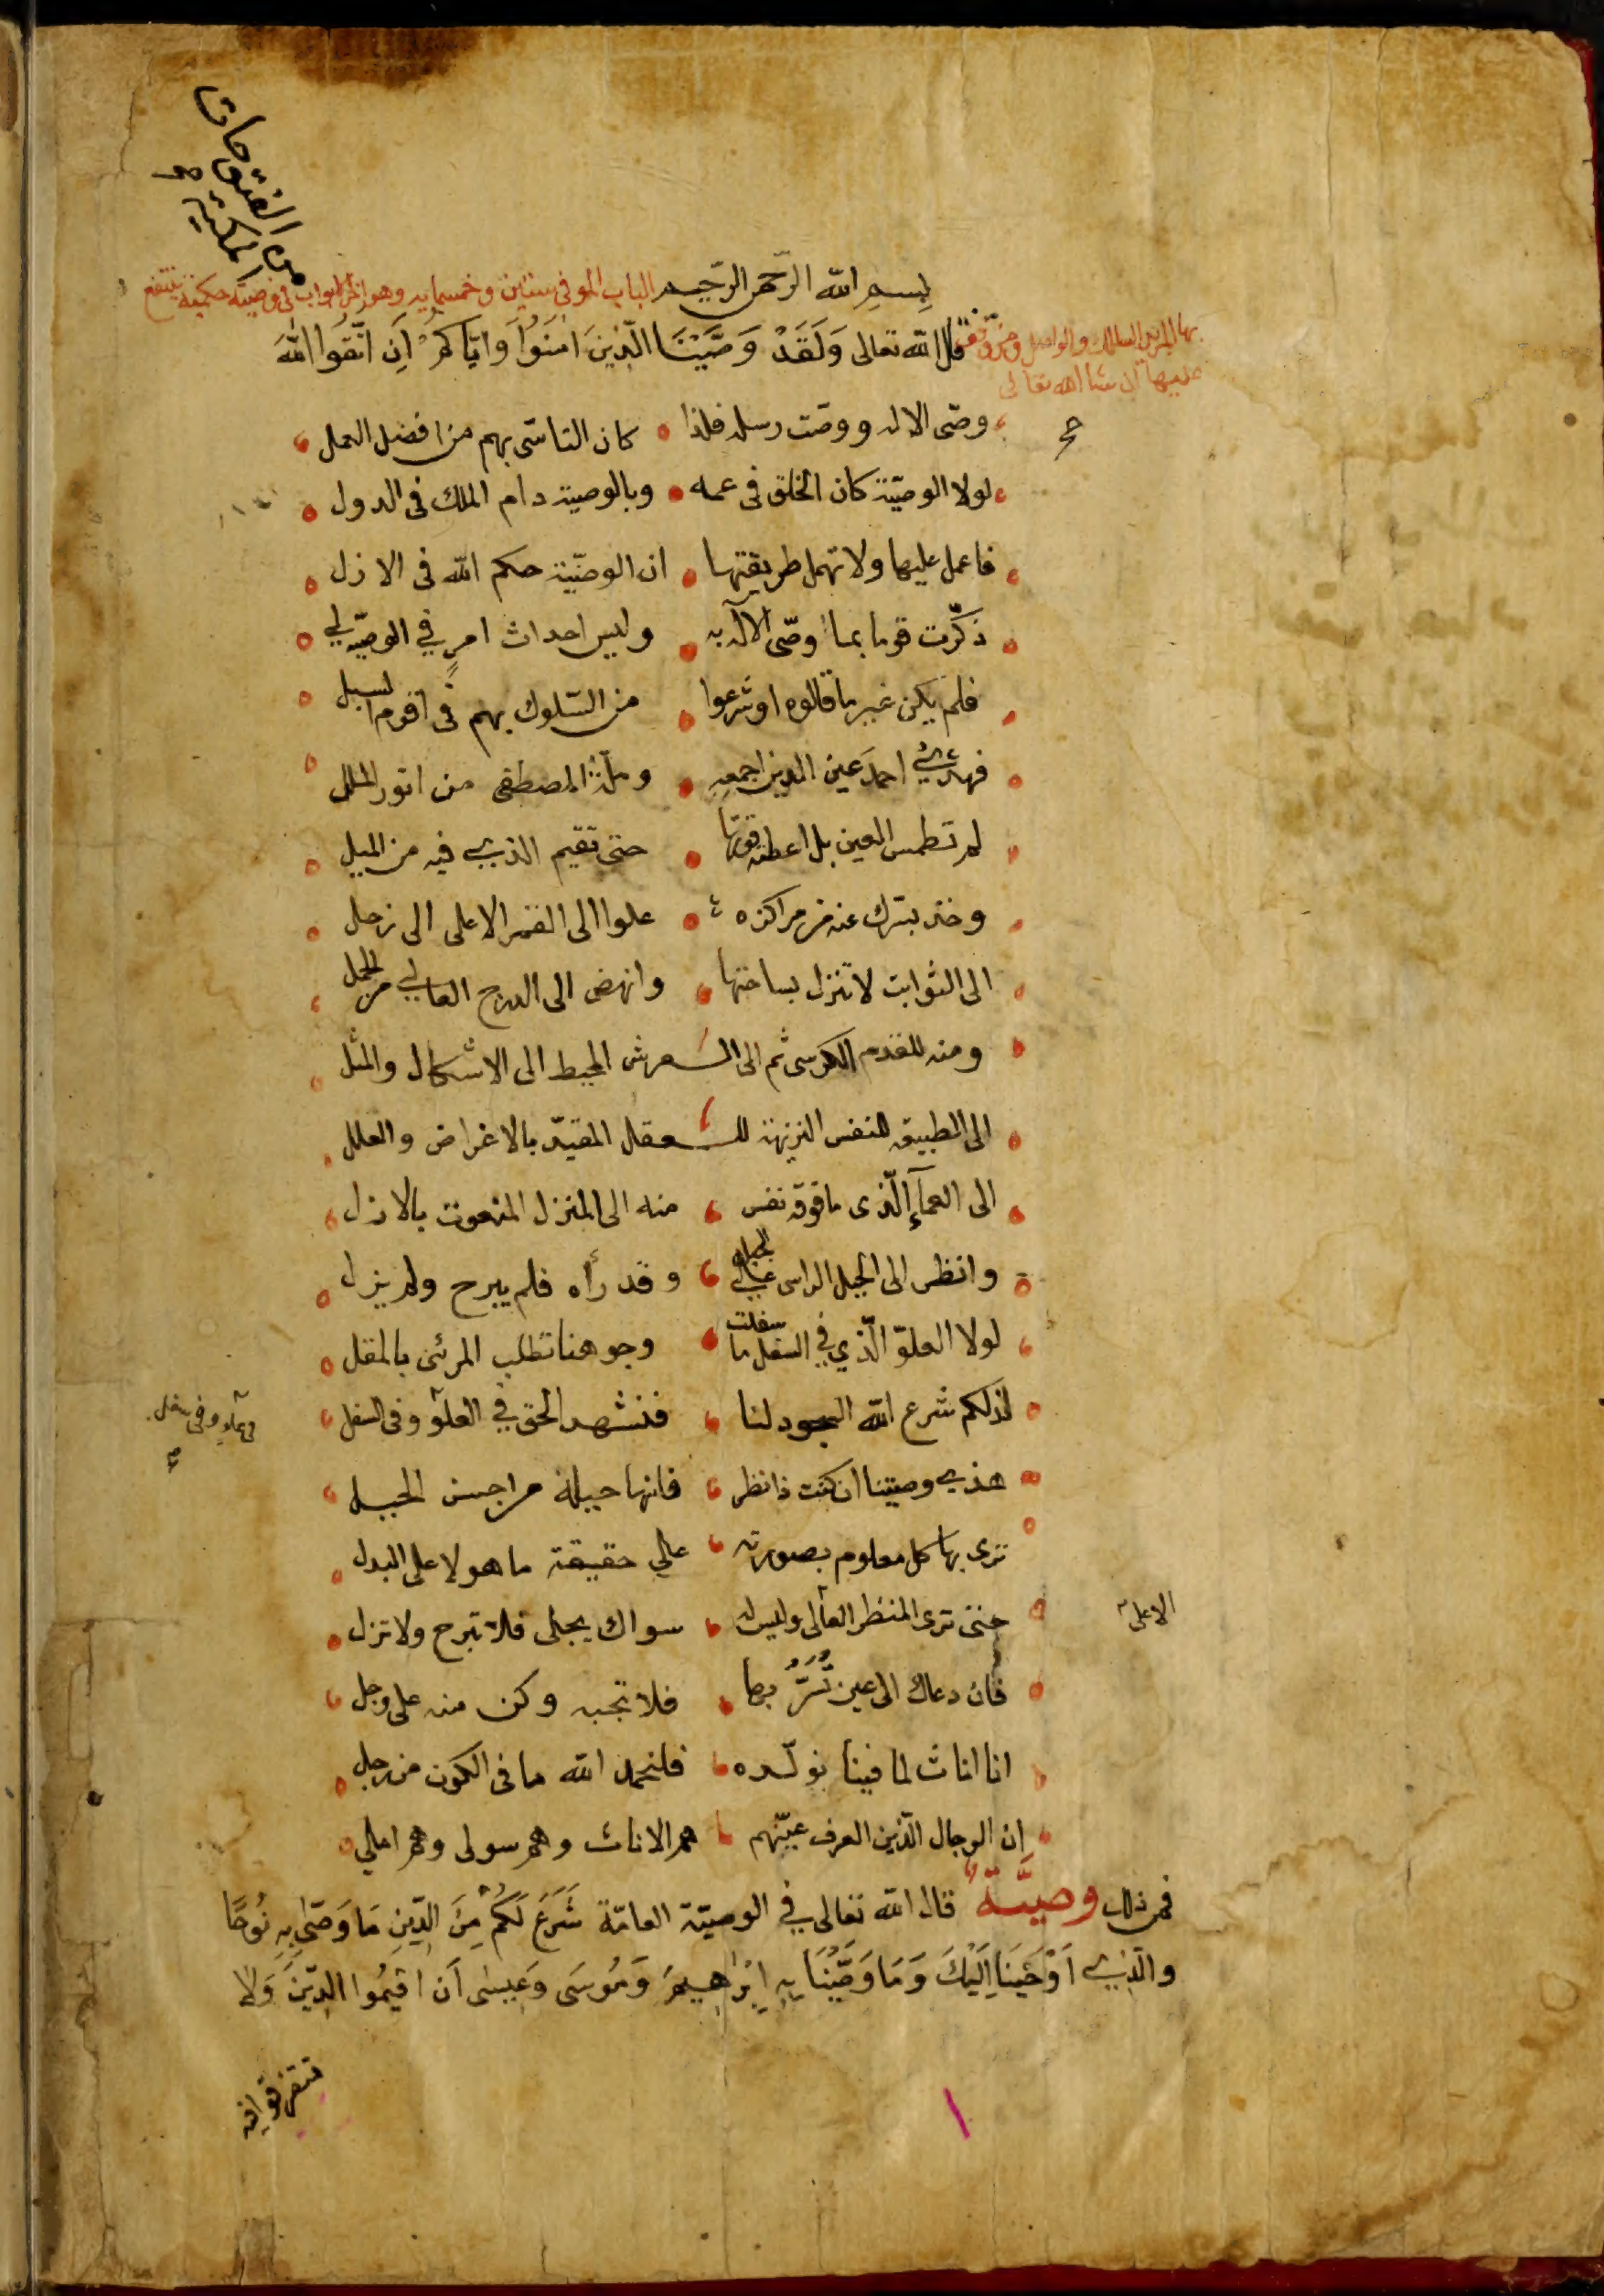 من الفتوحات
المكية
بسم الله الرحمن الرحيم الباب الموفى ستين وخمسمايه وهو اخر الابواب فى وصية حكمية ينتفع
بها المريد السالك والواصل ومن وقف
عليها ان شا الله تعالى
قال الله تعالى وَلَقَدْ وَصَّيْنَا الَّذِينَ امَنُوا وَاِيَّاكُمْ اَنِ اتَّقُوا اللهَ
وصّى الاله ووصت رسله فلذا كان التاسّى بهم من افضل العمل
لولا الوصيّة كان الخلق فى عمه وبالوصية دام الملك فى الدول
فاعمل عليها ولا تهمل طريقتها ان الوصيّية حكم الله فى الازل
ذكّرت قوما بما اوصّى الآله به وليس احداث امرٍ في الوصيّه لي
فلم يكن غير ما قالوه او شرعوا من السّلوك بهم فى اقوم السبل
فهدي احمد عين الدين اجمعه وملّة المصطفى من انور الملل
لم تطمس العين بل اعطته قوّتها حتى تقيم الذي فيه من الميل
وخذ بسّرك عنه من مراكزه علوا الى القمر الاعلى الى زحل
الى الثوابت لا تنزل بساحتها وانهض الى الدرج العالي من الحمل
ومنه للقدم الكرسى ثم الى العرش المحيط الى الاشكال والمثل
الى الطبيعه للنفس النزيهة للعقل المقيّد بالاغراض والعلل
الى العمآءِ الّذى ما فوقه نفس منه الى المنزل المنعوت بالازل
وانظر الى الجبل الراسى على الجبل وقد رأه فلم يبرح ولم يزل
لولا العلوّ الّذي في السفل ما سفلت وجوهنا تطلب المرئى بالمقل
لذلكم شرع الله السجود لنا فنشهد الحق في العلوّ وفى السفل
فى علو وفى سفل
هذي وصيتنا ان كنت ذا نظر فانها حيلة من احسن الحيل
ترى بها كل معلوم بصورته علي حقيقة ما هو لا على البدل
حتى ترى المنظر العالى وليس له سواك يجلى فلا تبرح ولا تزل
الاعلى
فان دعاك الى عين تُسَرُّ بها فلا تجبه وكن منه على وجل
انا اناث لما فينا يولّده فلنحمد الله ما فى الكون من رجل
ان الرجال الّذين العرف عيّنهم هم الاناث وهم سولى وهم املي
فمن ذلك وصيَّة قال الله تعالى في الوصيّة العامّة شَرَعَ لَكُمْ مِنَ الدِّينِ مَا وَصّى بِهِ نُوحًا
والَّذِي اَوْحَيْنَا اِلَيْكَ وَمَا وَصَّيْنَا بِهِ اِبْرَاهِيمَ وَمُوسَى وَعِيسٰى اَن اَقِيمُوا الدِّينَ وَلَا
تتفرقوا فيه
١